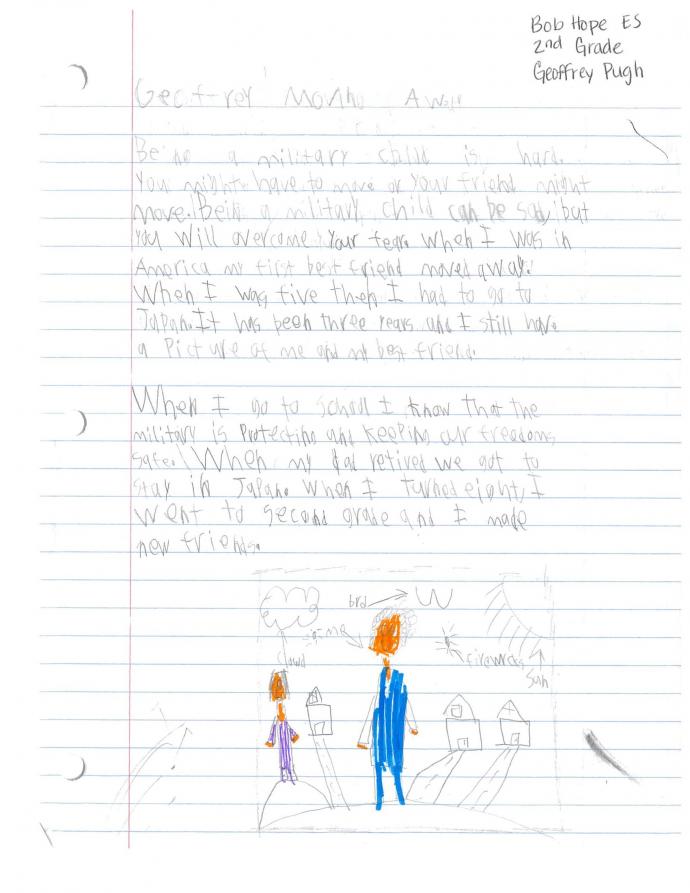 Bob Hope ES
2nd Grade
Geoffrey Pugh
Geoffrey Moving Away
Being a military child is hard.
You might have to move or your friend might
move. Being a military child can be sad, but
you will overcome your fear. When I was in
America my first best friend moved away.
When I was five then I had to go to
Japan. It has been three years and I still have
a Picture of me and my best friend.
When I go to school I know that the
military is Protecting and keeping our freedoms
safe. When my dad retired we got to
stay in Japan. When I turned eight, I
went to second grade and I made
new friends.
brd
me
clowd
fireworks
Sun